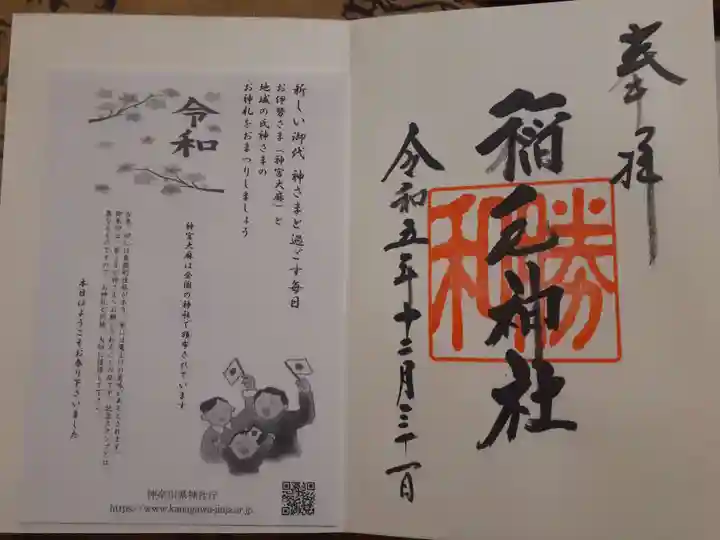 奉拝
稲毛神社
勝和
令和五年十二月三十一日
新しい御代 神さまと過ごす毎日
お伊勢さま（神宮大麻）と
地域の氏神さまの
お神札をおまつりしましょう
令和
神宮大麻は全国の神社で頒布されています
本日はようこそお参り下さいました
神奈川県神社庁
https://www.kanagawa-jinja.or.jp